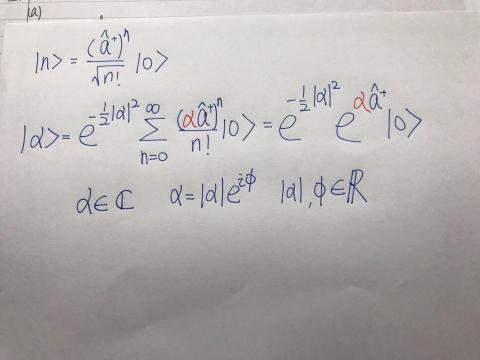 (a)
|n> = (â⁺)ⁿ/√n! |0>
|α> = e^{-½|α|²} ∑_{n=0}^{∞} (αâ⁺)ⁿ/n! |0> = e^{-½|α|²} e^{αâ⁺} |0>
α∈ℂ α=|α|e^{iϕ} |α|,ϕ∈ℝ